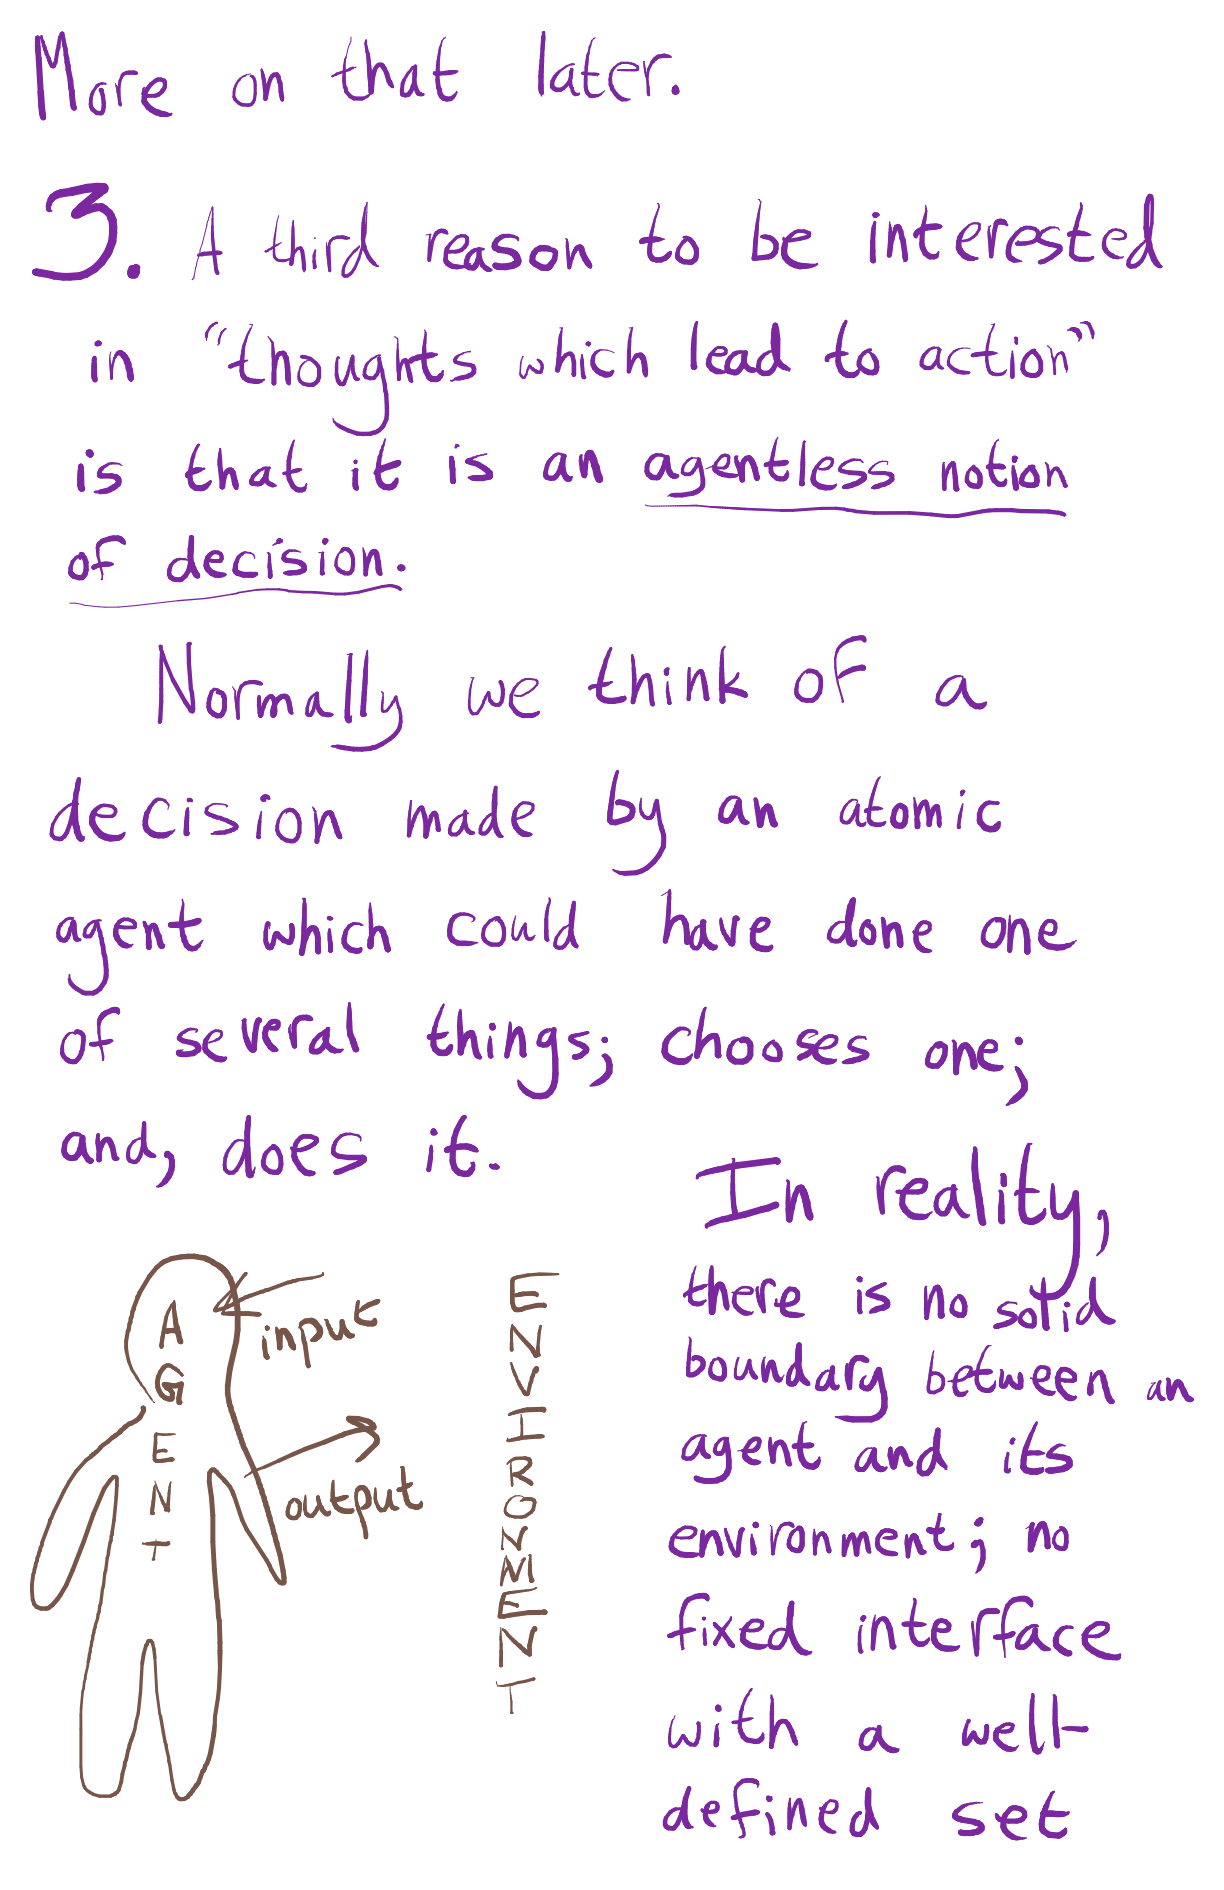 More on that later.
3. A third reason to be interested
in "thoughts which lead to action"
is that it is an agentless notion
of decision.
Normally we think of a
decision made by an atomic
agent which could have done one
of several things; chooses one;
and, does it.
In reality,
there is no solid
boundary between an
agent and its
environment; no
fixed interface
with a well-
defined set
AGENT
input
output
ENVIRONMENT